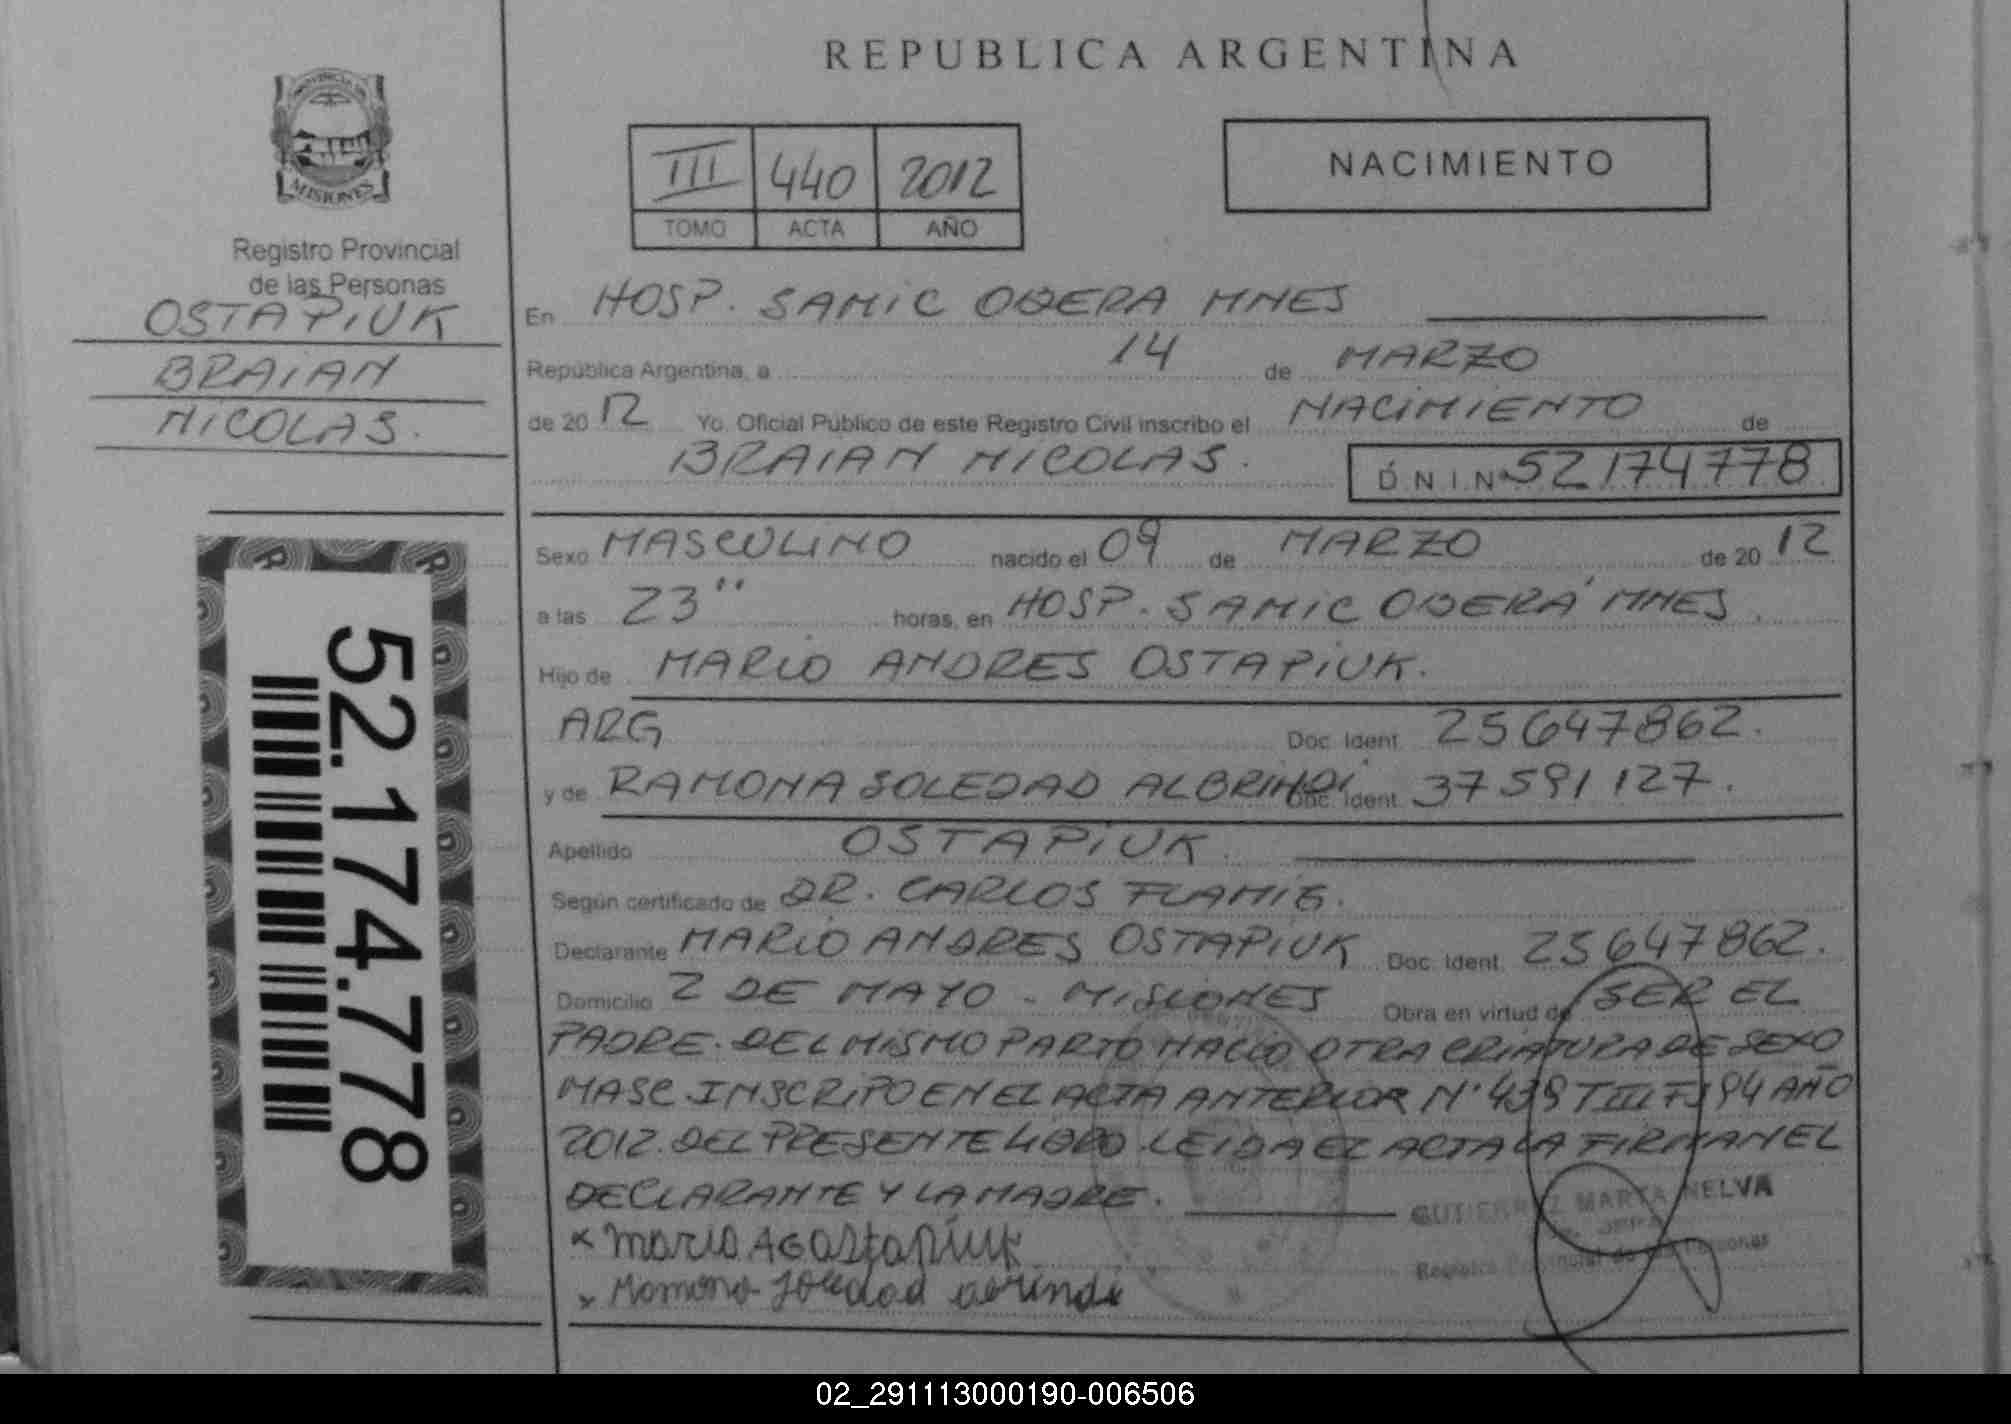 REPUBLICA ARGENTINA
PROVINCIA DE
MISIONES
Registro Provincial
de las Personas
OSTAPIUK
BRAIAN
NICOLAS.
52.174.778
III 440 2012
TOMO ACTA AÑO
NACIMIENTO
En HOSP. SAMIC OBERA MNES
República Argentina, a 14 de MARZO
de 20 12 Yo, Oficial Público de este Registro Civil inscribo el NACIMIENTO de
BRAIAN NICOLAS. D.N.I.Nº 52174778
Sexo MASCULINO nacido el 09 de MARZO de 20 12
a las 23'' horas, en HOSP. SAMIC OBERÁ MNES.
Hijo de MARIO ANDRES OSTAPIUK.
ARG Doc. Ident. 25647862.
y de RAMONA SOLEDAD ALBRINDI Doc. Ident. 37591127.
Apellido OSTAPIUK.
Según certificado de DR. CARLOS FLAMIG.
Declarante MARIO ANDRES OSTAPIUK Doc. Ident. 25647862.
Domicilio 2 DE MAYO - MISIONES Obra en virtud de SER EL
PADRE. DEL MISMO PARTO NACIO OTRA CRIATURA DE SEXO
MASC. INSCRIPO EN EL ACTA ANTERIOR Nº 439 T III F 194 AÑO
2012. DEL PRESENTE LIBRO. LEIDA EL ACTA LA FIRMAN EL
DECLARANTE Y LA MADRE.
GUTIERREZ MARTA NELVA
Registro Provincial de las Personas
x Mario A Ostapiuk
x Ramona Soledad
02_291113000190-006506